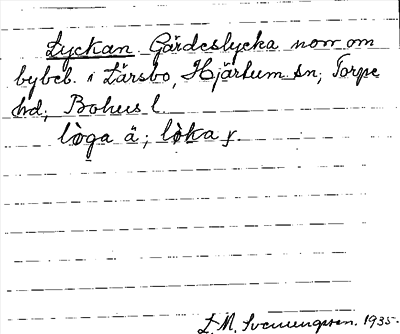 Lyckan Gärdeslycka norr om
bybeb. i Lärsbo, Hjärtum sn; Torpe
hd; Bohus l.
lòga ä; lòka y.
L. M. Svenungsson. 1935.